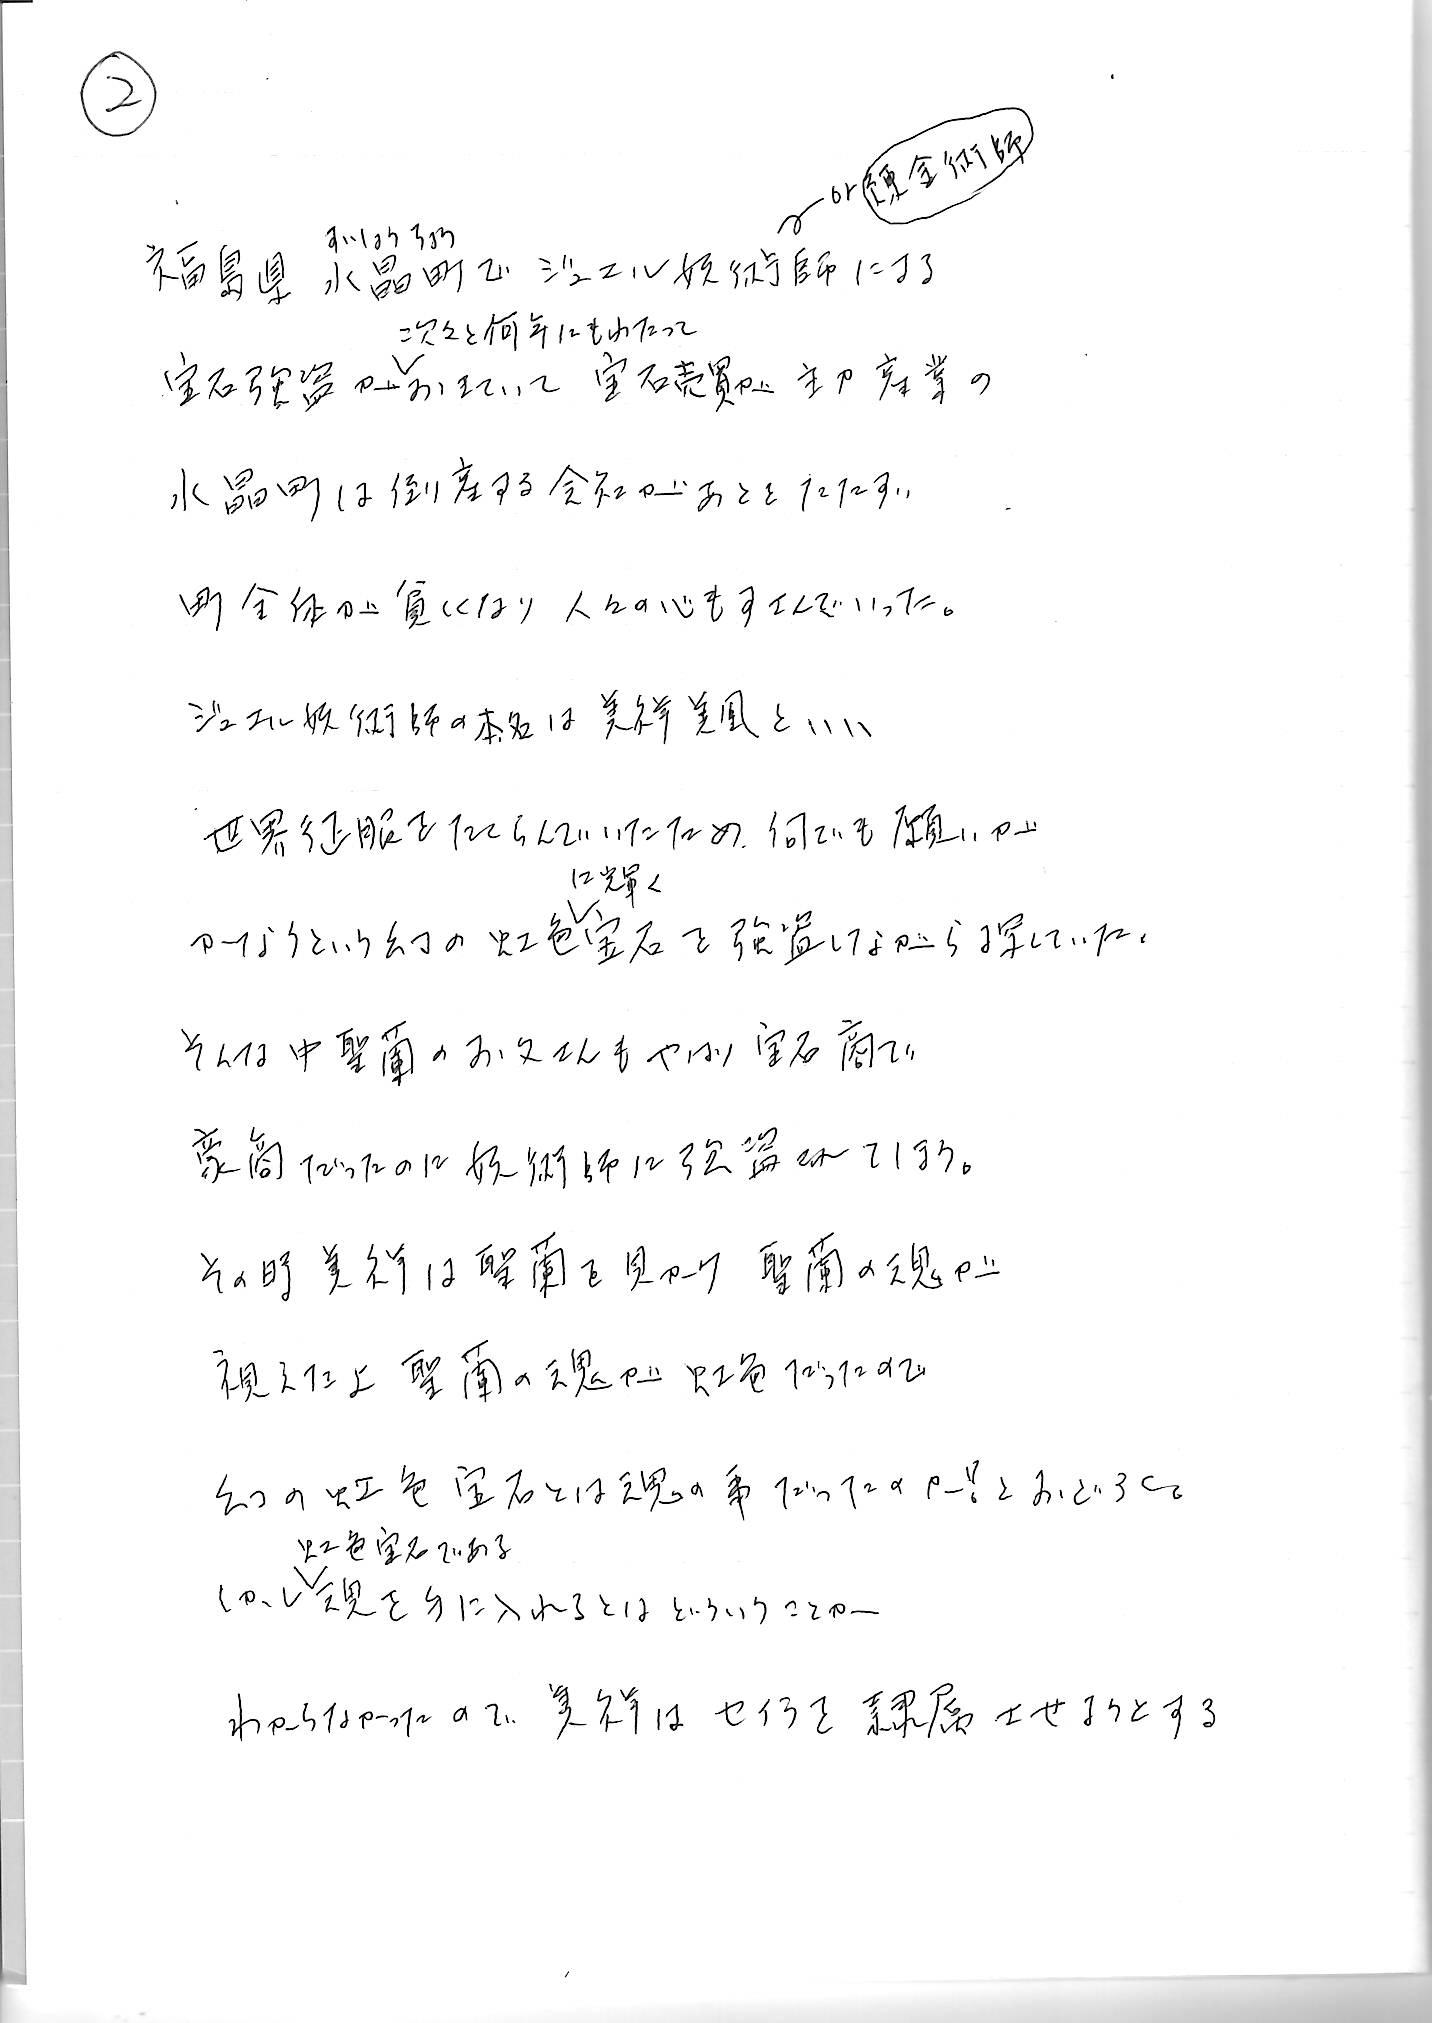 ②
or 錬金術師
すいしょうちょう
福島県 水晶町で ジュエル妖術師による
次々と何年にもわたって
宝石強盗がおきていて 宝石売買が 主力産業の
水晶町は倒産する会社があとをたたず、
町全体が貧しくなり 人々の心もすさんでいった。
ジュエル妖術師の本名は美祥美凰といい
世界征服をたくらんでいたため、何でも願いが
に輝く
かなうという幻の 虹色宝石を強盗しながら探していた。
そんな中聖蘭のお父さんもやはり宝石商で
豪商だったのに妖術師に強盗されてしまう。
その時 美祥は聖蘭を見かけ 聖蘭の魂が
視えたよ 聖蘭の魂が 虹色だったので
幻の虹色宝石とは魂の事だったのか!!とおどろく。
虹色宝石である
しかし魂を手に入れるとはどういうことか
わからなかったので、美祥はセイラを隷属させようとする